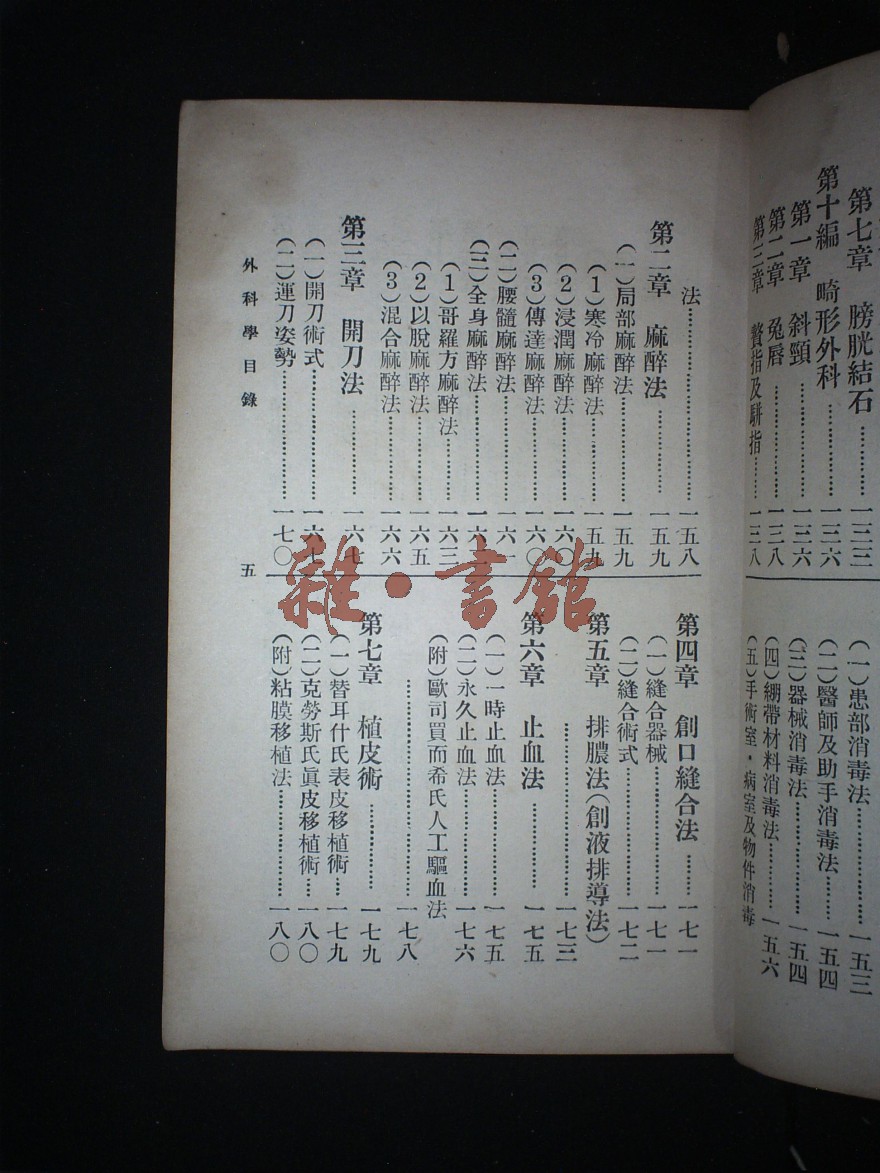 第七章　膀胱結石……一三三
第十編　畸形外科……一三六
第一章　斜頸……一三六
第二章　兔唇……一三八
第三章　贅指及駢指……一三八
(一)患部消毒法……一五三
(二)醫師及助手消毒法……一五四
(三)器械消毒法……一五四
(四)繃帶材料消毒法……一五六
(五)手術室・病室及物件消毒
法……一五八
第二章　麻醉法……一五九
(一)局部麻醉法……一五九
(1)寒冷麻醉法……一五九
(2)浸潤麻醉法……一六〇
(3)傳達麻醉法……一六〇
(二)腰髓麻醉法……一六一
(三)全身麻醉法……一六二
(1)哥羅方麻醉法……一六三
(2)以脫麻醉法……一六五
(3)混合麻醉法……一六六
第三章　開刀法……一六七
(一)開刀術式……一六七
(二)運刀姿勢……一七〇
第四章　創口縫合法……一七一
(一)縫合器械……一七一
(二)縫合術式……一七二
第五章　排膿法(創液排導法)
……一七三
第六章　止血法……一七五
(一)一時止血法……一七五
(二)永久止血法……一七六
(附)歐司買而希氏人工驅血法
……一七八
第七章　植皮術……一七九
(一)替耳什氏表皮移植術……一七九
(二)克勞斯氏眞皮移植術……一八〇
(附)粘膜移植法……一八〇
外科學目錄　五
雜・書館